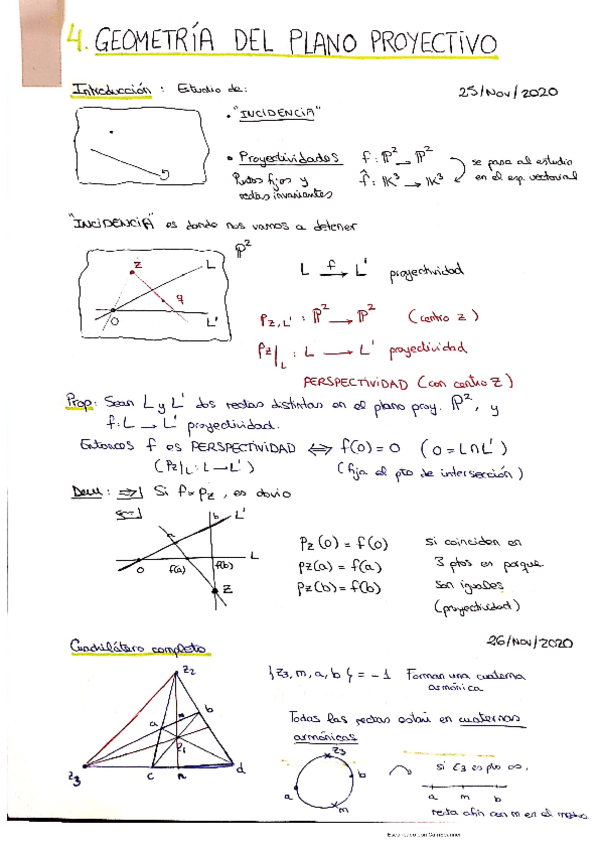 4. GEOMETRÍA DEL PLANO PROYECTIVO
Introducción : Estudio de:
25/Nov/2020
• "INCIDENCIA"
• Proyectividades f : P² → P²
Ptos fijos y
rectas invariantes
f̂ : K³ → K³
se pasa al estudio
en el esp. vectorial
"INCIDENCIA" es donde nos vamos a detener
P²
Z
L
q
O
L'
L f→ L' proyectividad
Pz,L' : P² → P² (centro z)
Pz|L : L → L' proyectividad
PERSPECTIVIDAD (con centro z)
Prop: Sean L y L' dos rectas distintas en el plano proy. P², y
f: L → L' proyectividad.
Entonces f es PERSPECTIVIDAD ⟺ f(O) = O (O = L∩L')
(Pz|L : L → L') (fija el pto de intersección)
Dem: ⇒| Si f = pz, es obvio
⇐|
b
L'
a
L
O
f(a)
f(b)
Z
Pz(O) = f(O)
Pz(a) = f(a)
Pz(b) = f(b)
si coinciden en
3 ptos es porque
son iguales
(proyectividad)
26/Nov/2020
Cuadrilátero completo
{z3, m, a, b} = -1 Forman una cuaterna
armónica
Todas las rectas están en cuaternas
armónicas
z2
a
b
z1
z3
c
n
d
z3
b
a
m
si z3 es pto ∞,
a m b
recta afín con m en el medio
Escaneado con CamScanner